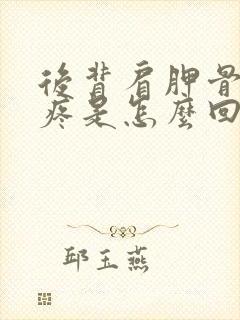 後背肩胛骨
疼是怎麼回
邱玉燕